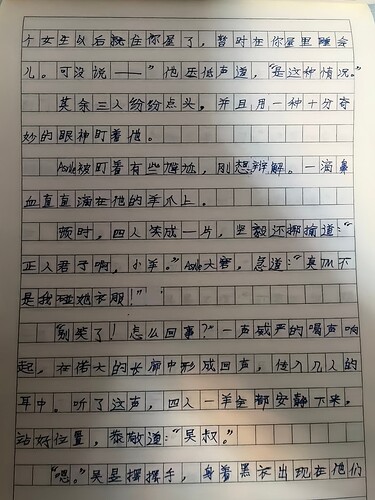 个女生以后就在你屋了，暂时在你屋里睡会
儿。可没说——”他压低声道，“是这种情况。”
其余三人纷纷点头。并且用一种十分奇
妙的眼神盯着他。
被盯着有些尴尬，刚想辩解。一滴鼻
血直直滴在他的手爪上。
顿时，四人笑成一片，坚毅还揶揄道：“
正人君子啊，小羊。”大窘，急道：“真的不
是我碰她衣服！”
“别笑了！怎么回事？”一声威严的喝声响
起，在偌大的长廊中形成回声，传入几人的
耳中。听了这声，四人一羊全都安静下来，
站好位置，恭敬道：“吴叔。”
“嗯。”吴昱摆摆手，身着黑衣出现在他们